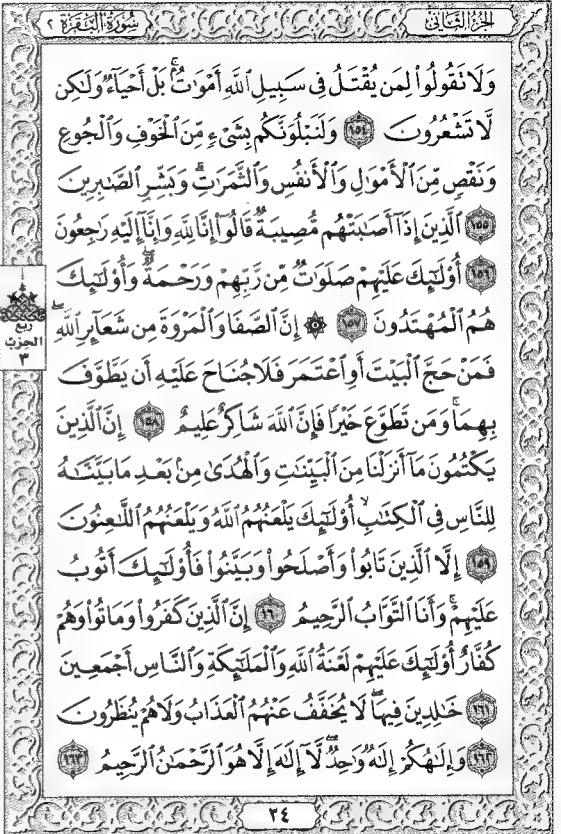 سُورَةُ البَقَرَةِ ٢
الجُزْءُ الثَّانِي
وَلَا تَقُولُوا۟ لِمَن يُقْتَلُ فِى سَبِيلِ ٱللَّهِ أَمْوَٰتٌۢ ۚ بَلْ أَحْيَآءٌ وَلَٰكِن
لَّا تَشْعُرُونَ ١٥٤ وَلَنَبْلُوَنَّكُم بِشَىْءٍ مِّنَ ٱلْخَوْفِ وَٱلْجُوعِ
وَنَقْصٍ مِّنَ ٱلْأَمْوَٰلِ وَٱلْأَنفُسِ وَٱلثَّمَرَٰتِ ۗ وَبَشِّرِ ٱلصَّٰبِرِينَ
١٥٥ ٱلَّذِينَ إِذَآ أَصَٰبَتْهُم مُّصِيبَةٌ قَالُوٓا۟ إِنَّا لِلَّهِ وَإِنَّآ إِلَيْهِ رَٰجِعُونَ
١٥٦ أُو۟لَٰٓئِكَ عَلَيْهِمْ صَلَوَٰتٌ مِّن رَّبِّهِمْ وَرَحْمَةٌ ۖ وَأُو۟لَٰٓئِكَ
هُمُ ٱلْمُهْتَدُونَ ١٥٧ ۞ إِنَّ ٱلصَّفَا وَٱلْمَرْوَةَ مِن شَعَآئِرِ ٱللَّهِ ۖ
فَمَنْ حَجَّ ٱلْبَيْتَ أَوِ ٱعْتَمَرَ فَلَا جُنَاحَ عَلَيْهِ أَن يَطَّوَّفَ
بِهِمَا ۚ وَمَن تَطَوَّعَ خَيْرًا فَإِنَّ ٱللَّهَ شَاكِرٌ عَلِيمٌ ١٥٨ إِنَّ ٱلَّذِينَ
يَكْتُمُونَ مَآ أَنزَلْنَا مِنَ ٱلْبَيِّنَٰتِ وَٱلْهُدَىٰ مِنۢ بَعْدِ مَا بَيَّنَّٰهُ
لِلنَّاسِ فِى ٱلْكِتَٰبِ ۙ أُو۟لَٰٓئِكَ يَلْعَنُهُمُ ٱللَّهُ وَيَلْعَنُهُمُ ٱللَّٰعِنُونَ
١٥٩ إِلَّا ٱلَّذِينَ تَابُوا۟ وَأَصْلَحُوا۟ وَبَيَّنُوا۟ فَأُو۟لَٰٓئِكَ أَتُوبُ
عَلَيْهِمْ ۚ وَأَنَا ٱلتَّوَّابُ ٱلرَّحِيمُ ١٦٠ إِنَّ ٱلَّذِينَ كَفَرُوا۟ وَمَاتُوا۟ وَهُمْ
كُفَّارٌ أُو۟لَٰٓئِكَ عَلَيْهِمْ لَعْنَةُ ٱللَّهِ وَٱلْمَلَٰٓئِكَةِ وَٱلنَّاسِ أَجْمَعِينَ
١٦١ خَٰلِدِينَ فِيهَا ۖ لَا يُخَفَّفُ عَنْهُمُ ٱلْعَذَابُ وَلَا هُمْ يُنظَرُونَ
١٦٢ وَإِلَٰهُكُمْ إِلَٰهٌ وَٰحِدٌ ۖ لَّآ إِلَٰهَ إِلَّا هُوَ ٱلرَّحْمَٰنُ ٱلرَّحِيمُ ١٦٣
ربع
الحزب
٣
٢٤